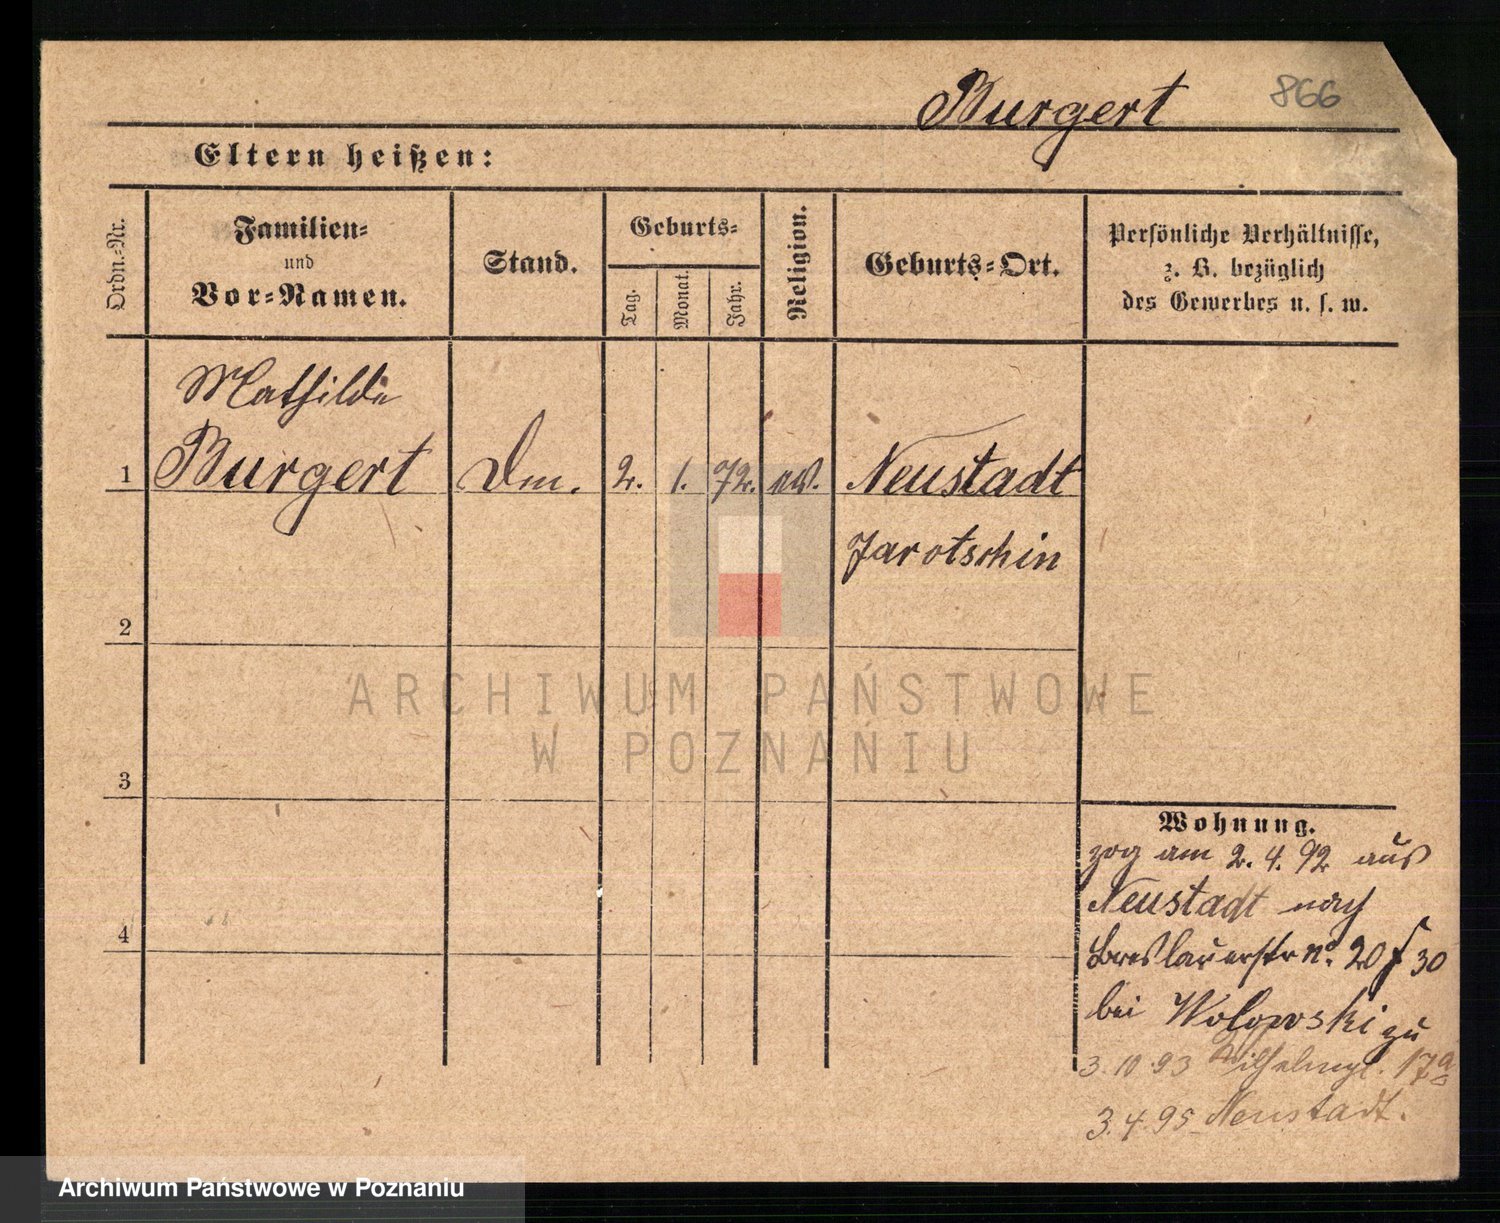 Burgert 866
Eltern heißen:
Ordn.-Nr.
Familien-
und
Vor-Namen.
Stand.
Geburts-
Tag.
Monat.
Jahr.
Religion.
Geburts-Ort.
Persönliche Verhältnisse,
z. B. bezüglich
des Gewerbes u. s. w.
Mathilde
1 Burgert Dm. 2. 1. 72. ev. Neustadt
Jarotschin
2
3
4
Wohnung.
zog am 2.4.92 aus
Neustadt nach
Breslauerstr no. 20 30
bei zu
3.10.93 Wilhelmpl. 17a
3.4.95 Neustadt.
ARCHIWUM PAŃSTWOWE
W POZNANIU
Archiwum Państwowe w Poznaniu